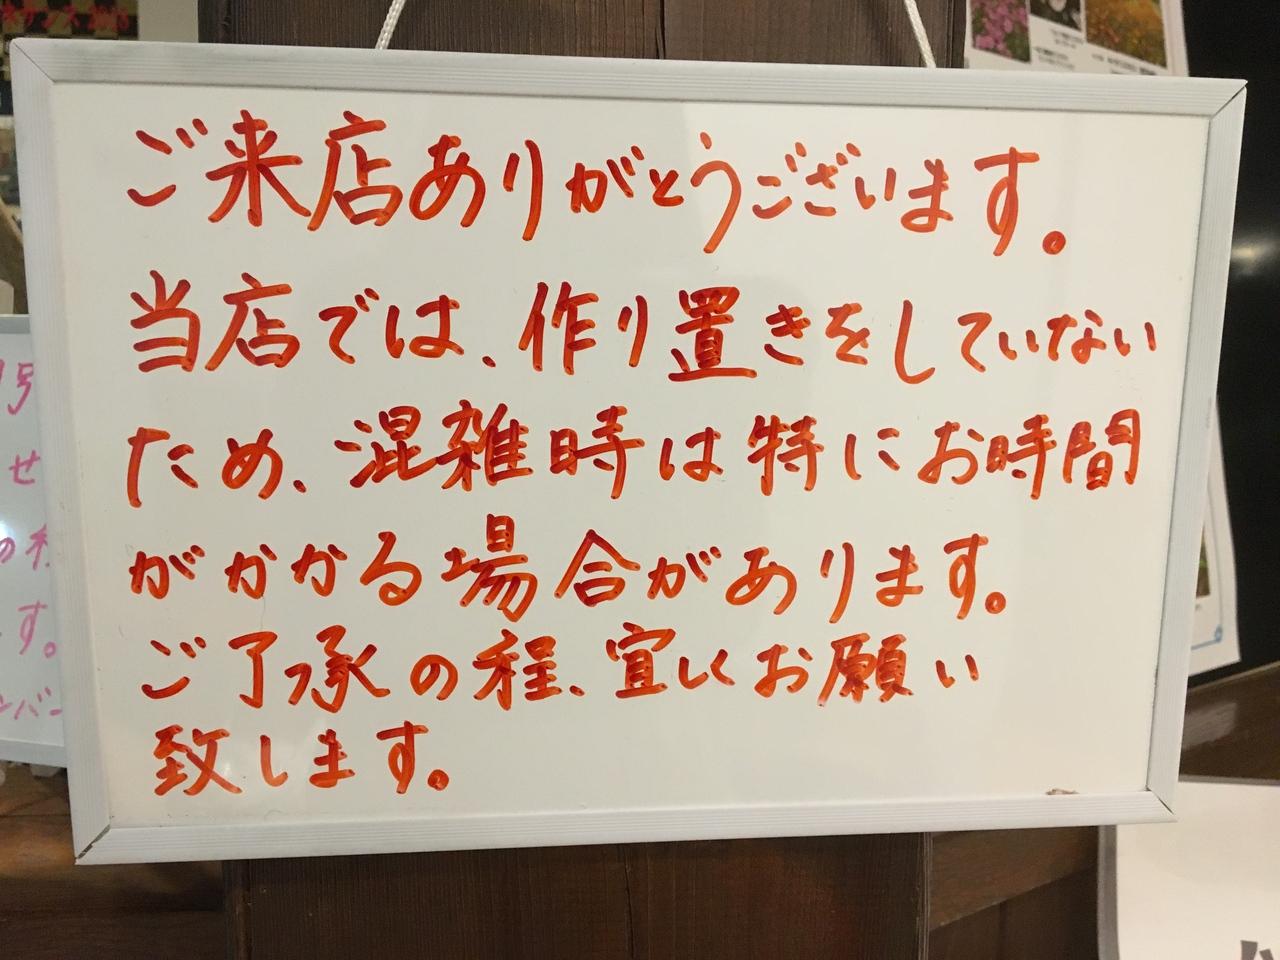 ご来店ありがとうございます。
当店では、作り置きをしていない
ため、混雑時は特にお時間
がかかる場合があります。
ご了承の程、宜しくお願い
致します。
号
せ
の程
す。